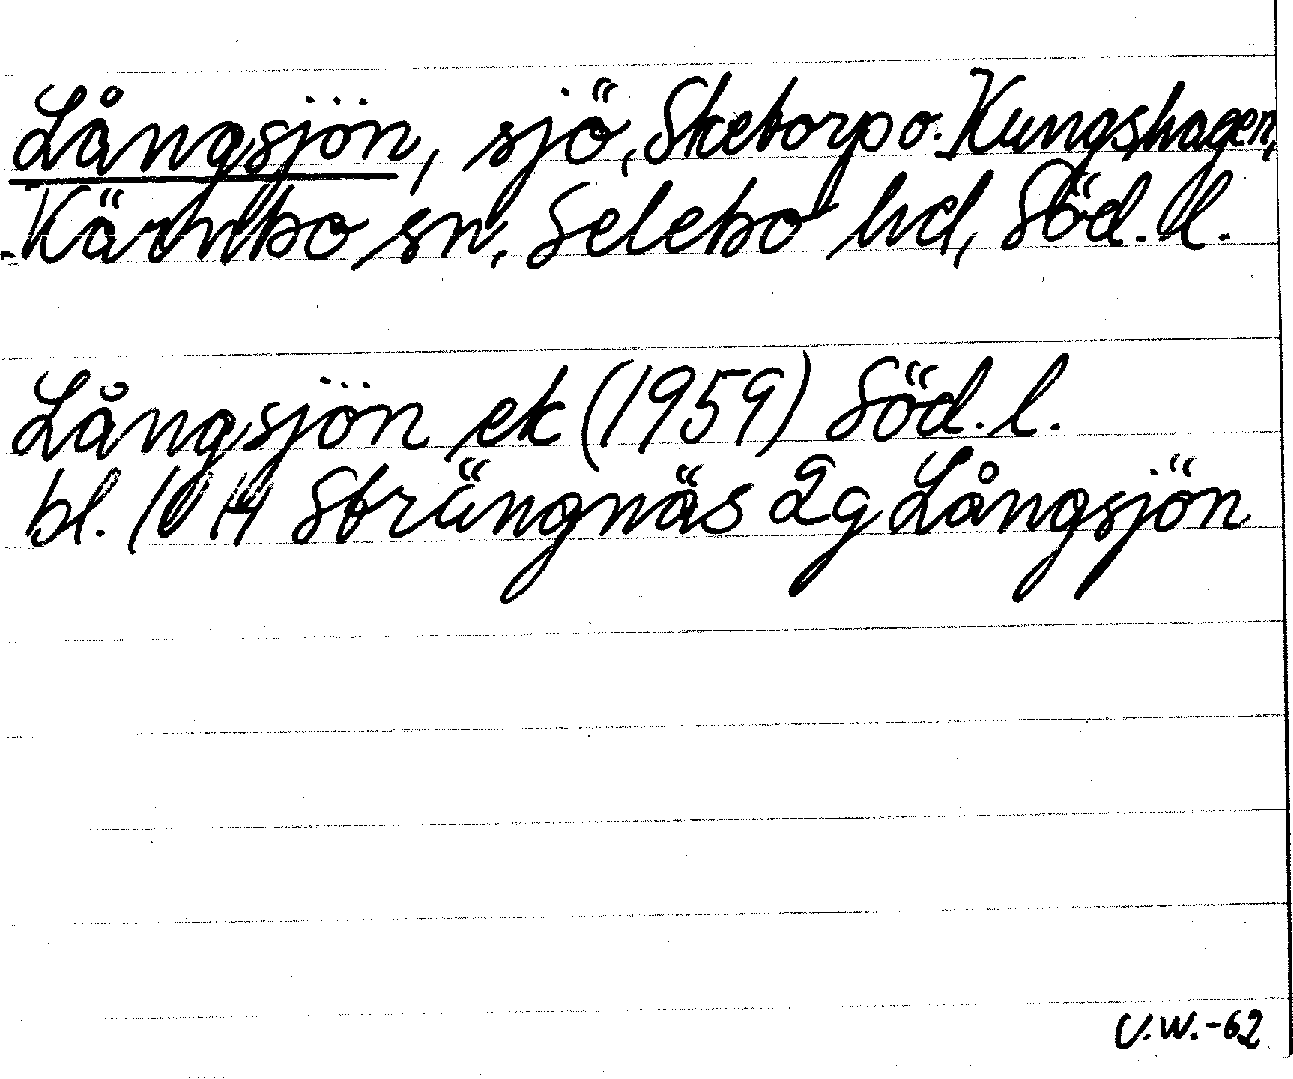 Långsjön, sjö, Sketorp o. Kungshagen,
Kärnbo sn, Selebo hd, Söd. l.
Långsjön ek (1959) Söd. l.
bl. 10 H Strängnäs 2g Långsjön
V.W.-62